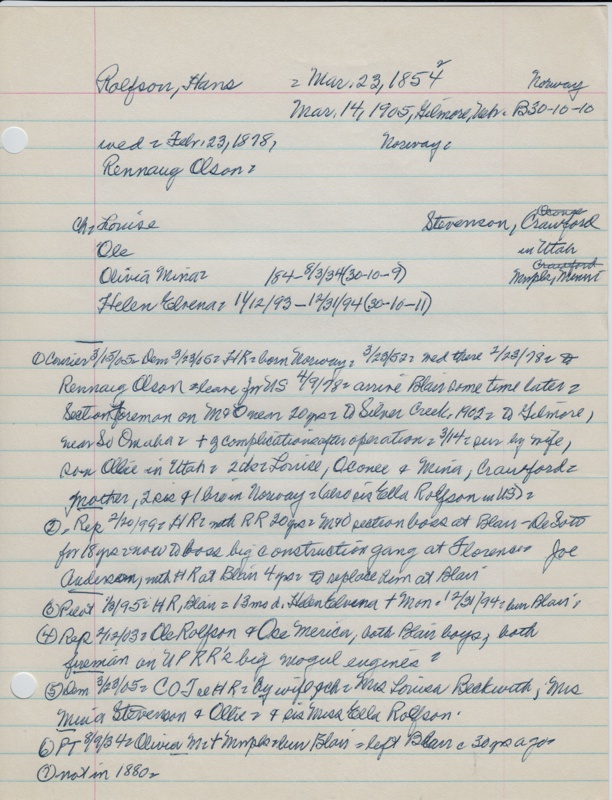 Rolfson, Hans = Mar. 23, 1854 2 Norway
Mar. 14, 1905, Gilmore, Neb. B30-10-10
wed = Febr. 23, 1878, Norway =
Rennaug Olson =
Ch = Louise Stevenson, Oconee Crawford
Ole in Utah
Olivia Mina = /84 - 8/3/34 (30-10-9) Crawford Mnpls, Minn
Helen Elvena = 11/12/93 - 12/31/94 (30-10-11)
① Courier 3/15/05 = Dem 3/23/05 = HR = born Norway = 3/23/52 = wed there 2/23/78 = to
Rennaug Olson = leave for US 4/9/78 = arrive Blair some time later =
Section foreman on M&O near 20 yrs = to Silver Creek, 1902 = to Gilmore,
near So Omaha = + of complications after operation = 3/14 = sur by wife,
son Ollie in Utah = 2 da = Louise, Oconee & Mina, Crawford =
mother, 2 sis & 1 bro in Norway = (also sis Ella Rolfson in US) =
②. Rep 2/20/99 = HR = with RR 20 yrs = M&O section boss at Blair - DeSoto
for 18 yrs = now to boss big construction gang at Florence = Joe
Anderson, with HR at Blair 4 yrs = to replace him at Blair
③ Pilot 1/3/95 = HR, Blair = 13 mo d. Helen Elvena + Mon. 12/31/94 = bur Blair =
④ Rep 2/12/03 = Ole Rolfson & Ose Merica, both Blair boys, both
fireman on UPRR's big mogul engines =
⑤ Dem 3/23/05 = C O T ee HR = by wife & ch = Mrs Louisa Beckwith, Mrs
Mina Stevenson & Ollie = & sis Miss Ella Rolfson.
⑥ PT 8/9/34 = Olivia M = + Mnpls = bur Blair = left Blair c 30 yrs ago =
⑦ not in 1880 =